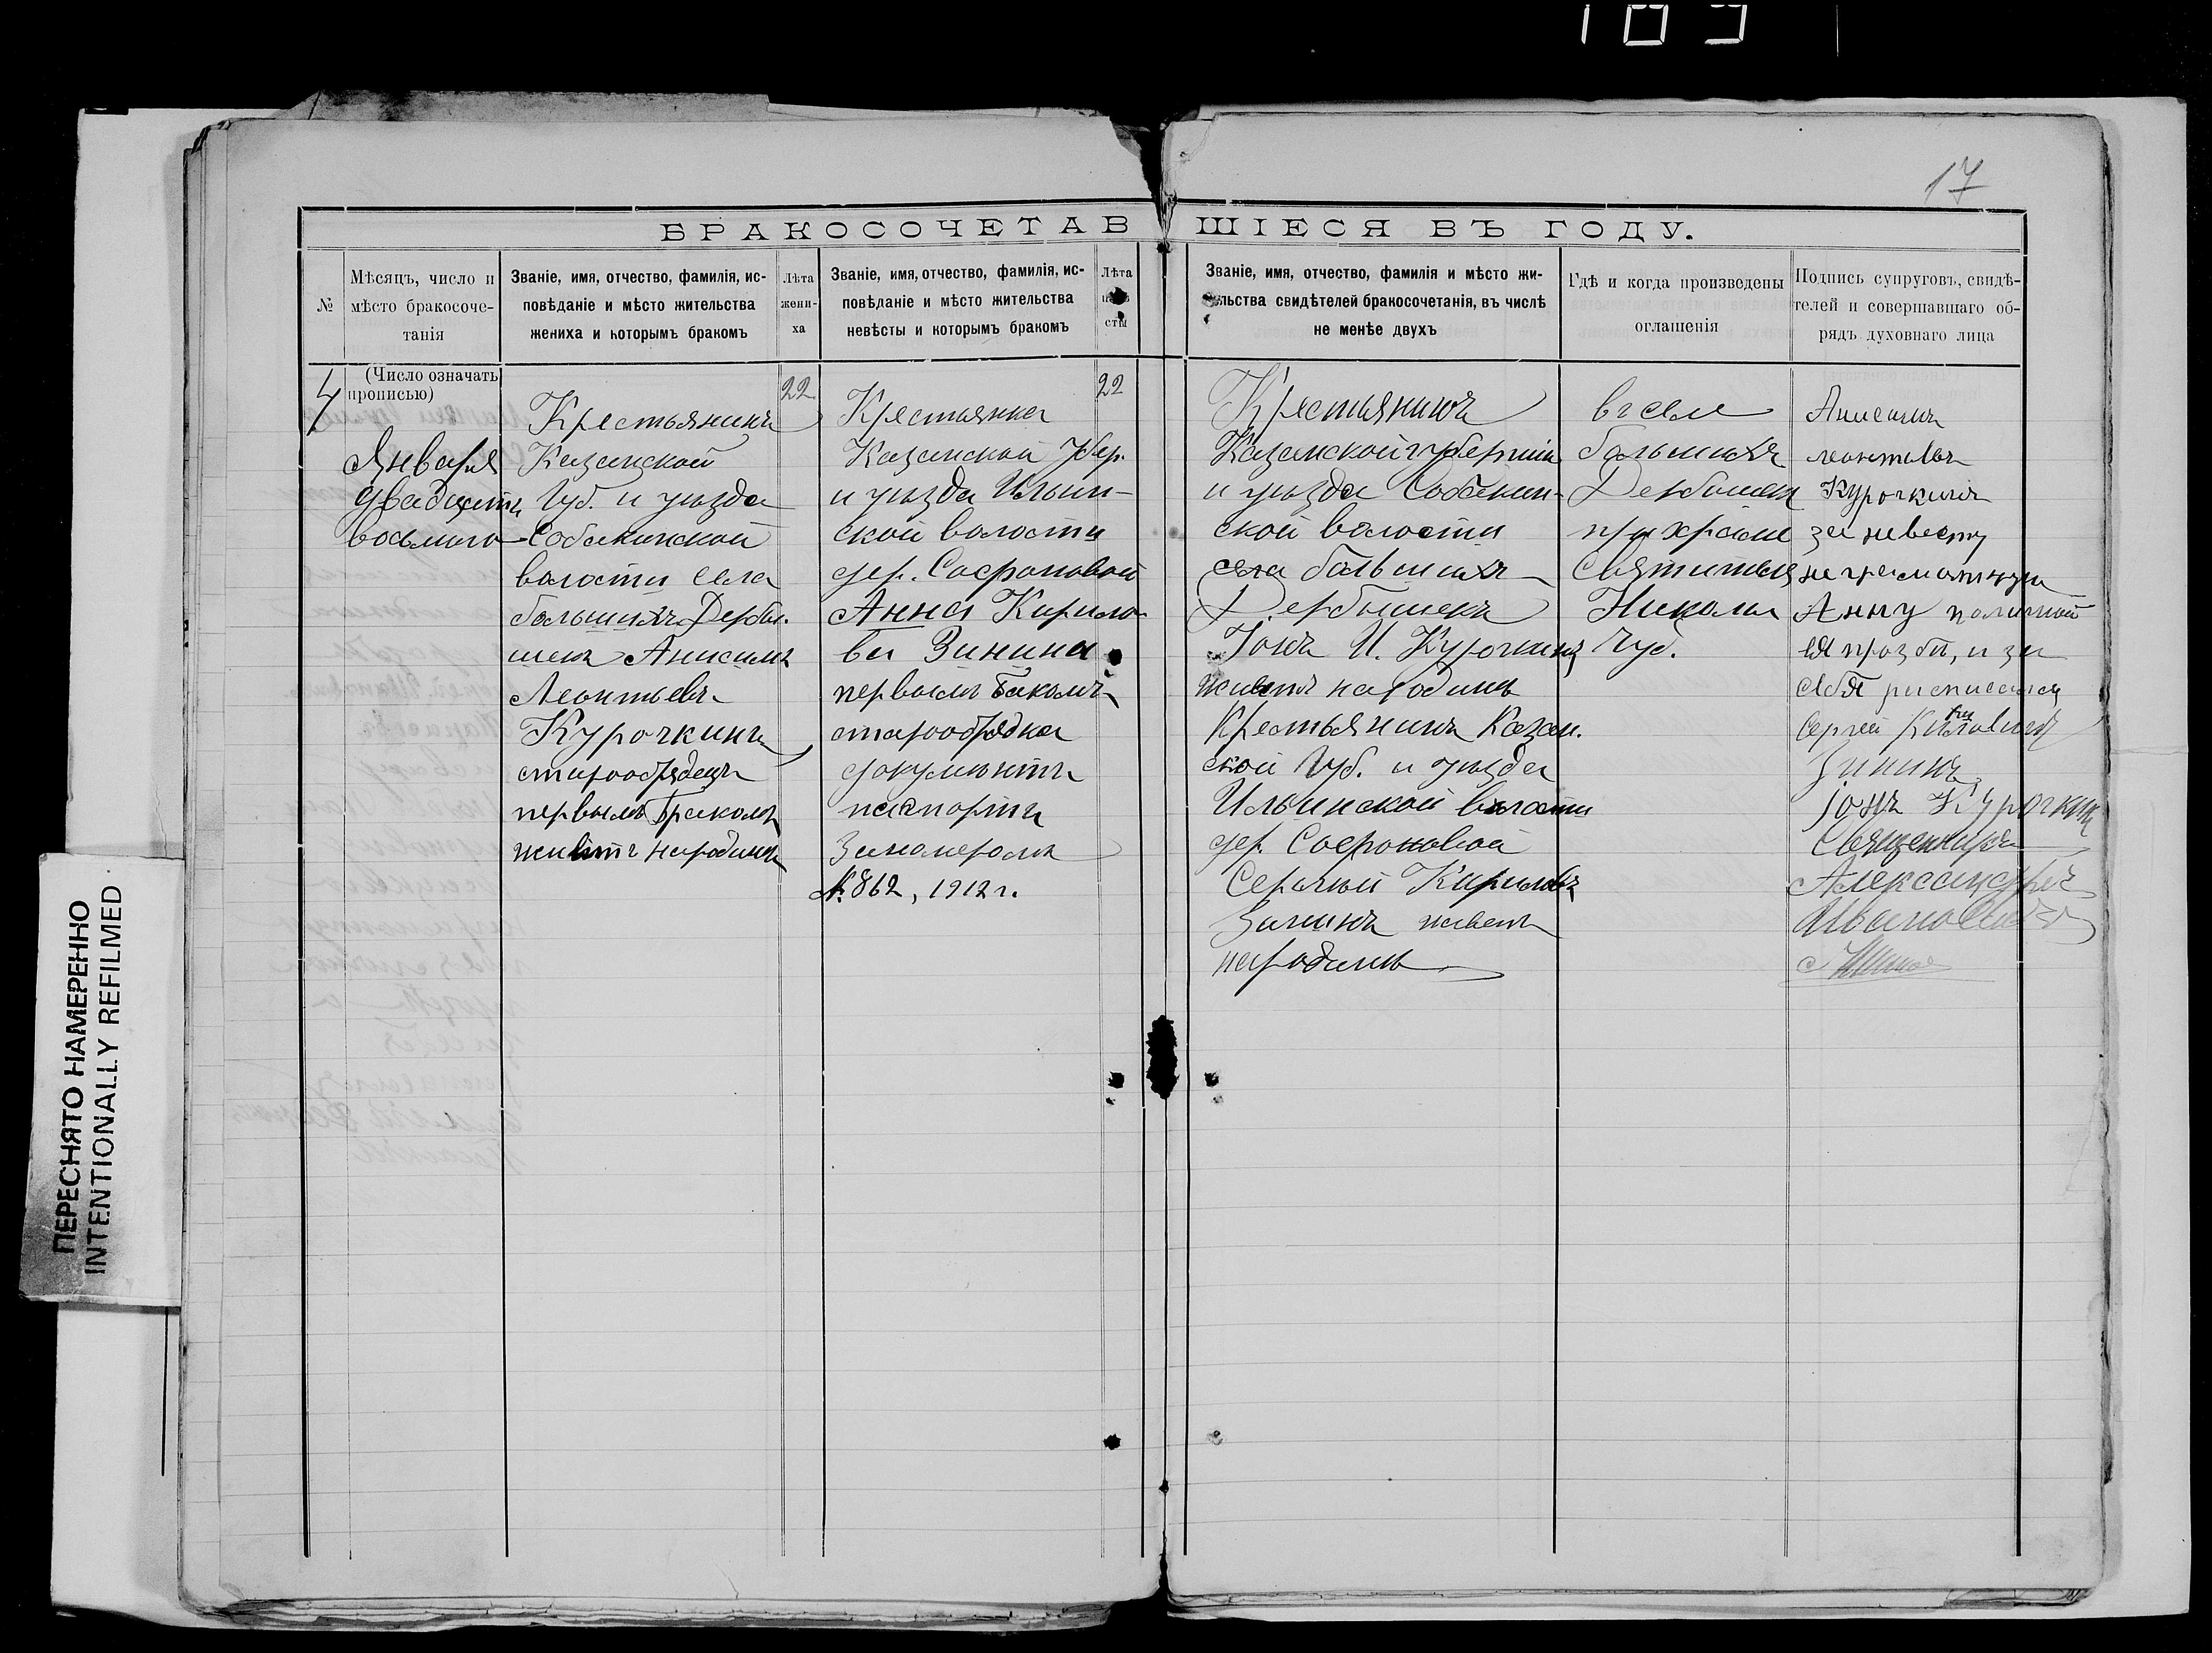 17
БРАКОСОЧЕТАВШІЕСЯ ВЪ ГОДУ.
№
Мѣсяцъ, число и
мѣсто бракосоче-
танія
Званіе, имя, отчество, фамилія, ис-
повѣданіе и мѣсто жительства
жениха и которымъ бракомъ
Лѣта
жени-
ха
Званіе, имя, отчество, фамилія, ис-
повѣданіе и мѣсто жительства
невѣсты и которымъ бракомъ
Лѣта
сты
Званіе, имя, отчество, фамилія и мѣсто жи-
льства свидѣтелей бракосочетанія, въ числѣ
не менѣе двухъ
Гдѣ и когда произведены
оглашенія
Подпись супруговъ, свидѣ-
телей и совершавшаго об-
рядъ духовнаго лица
4
(Число означать
прописью)
Января
двадцать
восьмого
Крестьянинъ
Казанской
Губ. и уѣзда
Собакинской
волости села
большихъ Дербы-
шекъ Анисимъ
Леонтьевъ
Курочкинъ
старообрядецъ
первымъ бракомъ
живетъ народинѣ
22
Крестьянка
Казанской Губер.
и уѣзда Ильин-
ской волости
дер. Софроновой
Анна Кирило-
ва Зинина
первымъ бакомъ
старообрядка
документъ
паспортъ
Заномеромъ
№ 862, 1912 г.
22
Крестьянинъ
Казанской губерніи
и уѣзда Собакин-
ской волости
села большихъ
Дербышекъ
Іонъ И. Курочкинъ
живетъ народинѣ
Крестьянинъ Казан.
ской Губ. и уѣзда
Ильинской волости
дер. Софроновой
Сергѣй Кириловъ
Зининъ живетъ
народинѣ
въ селе
большихъ
Дербышки
при храме
Святителя
Николы
Чуд.
Анисимъ
леонтьевъ
Курочкинъ
за невесту
неграматную
Анну поличной
ея прозби, и за
себя расписался
Сергей Кириловичъ
Зининъ
Іонъ Курочкинъ
Священникъ
Александръ
Ивановичъ
ПЕРЕСНЯТО НАМЕРЕННО
INTENTIONALLY REFILMED